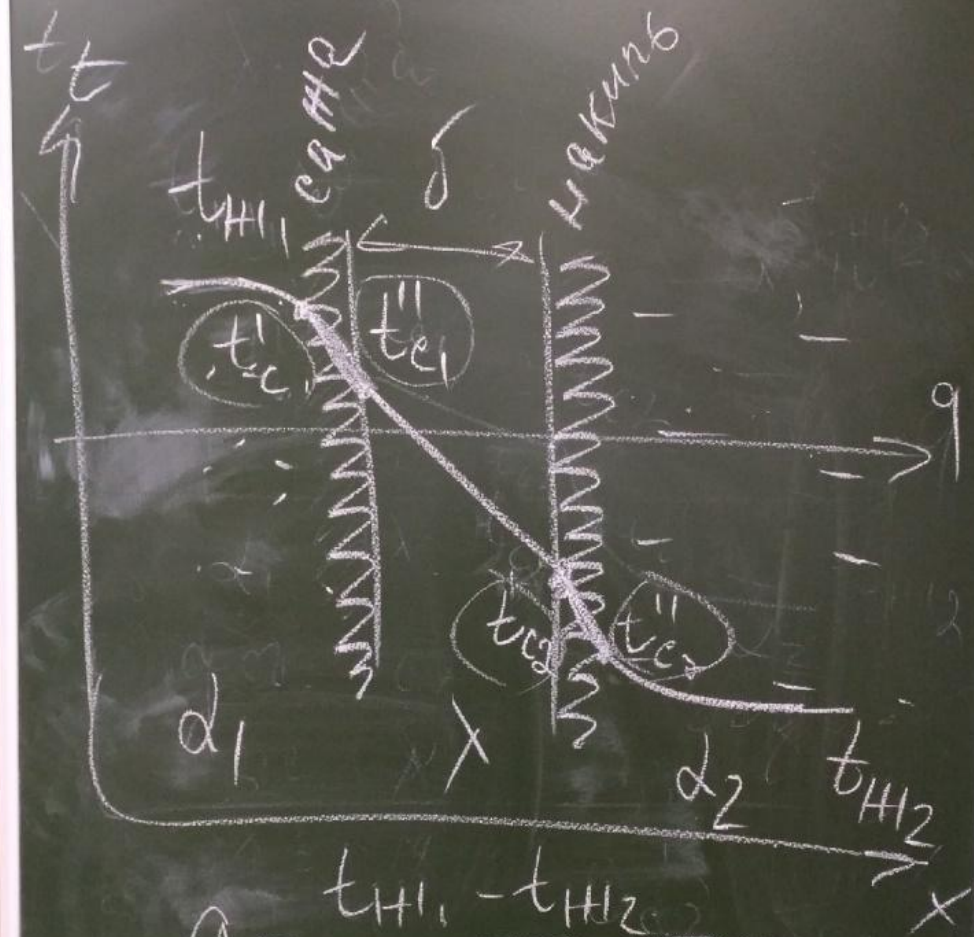 t
t
сажа
δ
накипь
tж1
t'c1
t''c1
q
t'c2
t''c2
α1
λ
α2
tж2
x
tж1 - tж2